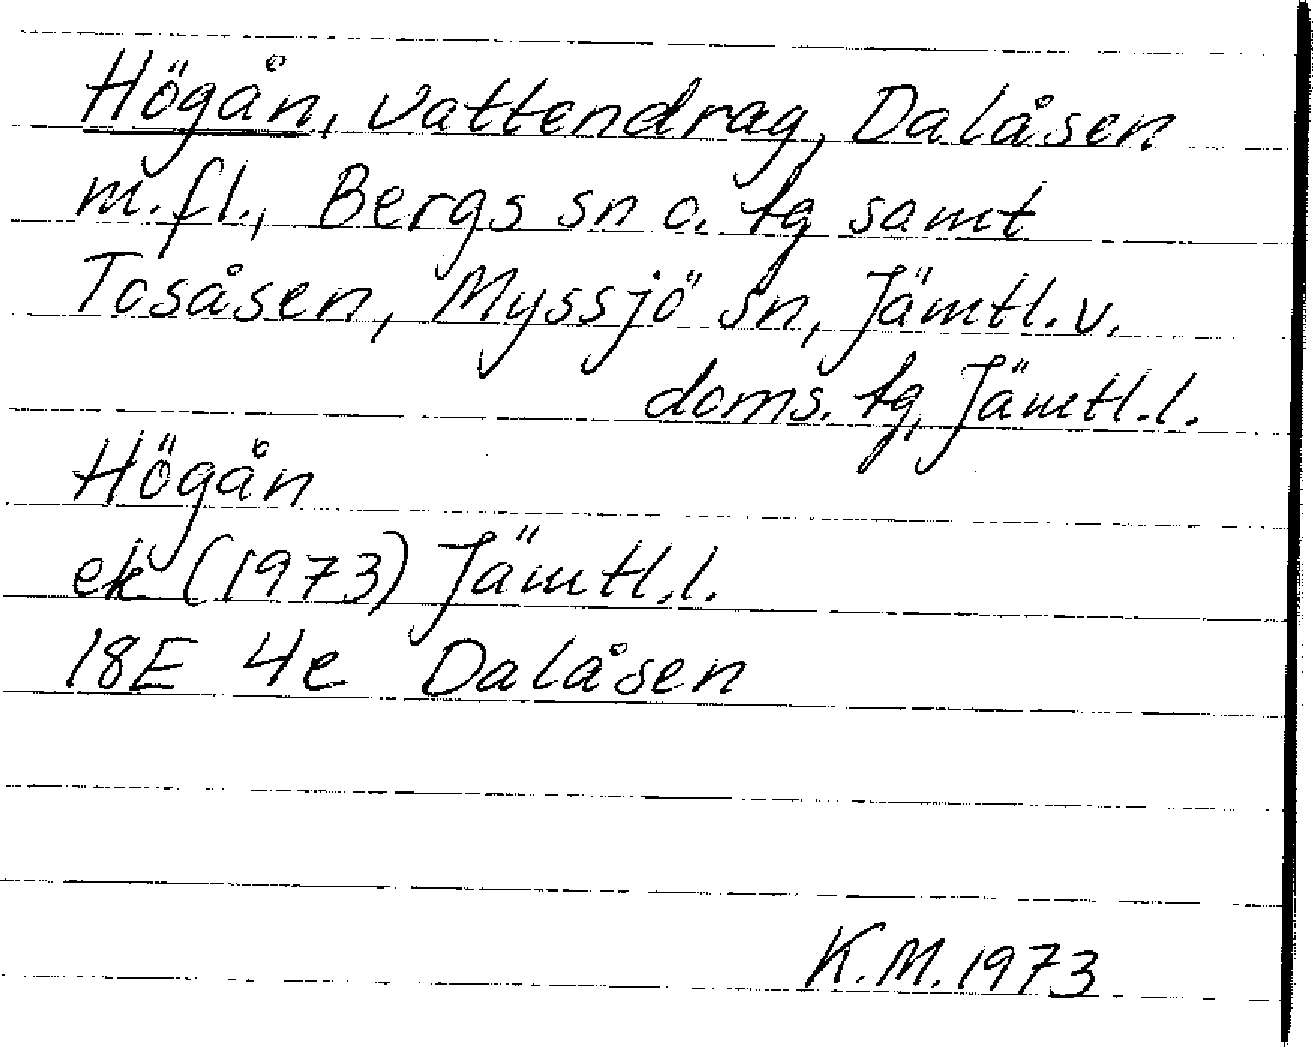 Högån, vattendrag, Dalåsen
m.fl., Bergs sn o. tg samt
Tosåsen, Myssjö sn, Jämtl. v.
doms. tg, Jämtl. l.
Högån
ek (1973) Jämtl. l.
18E 4e Dalåsen
K.M. 1973